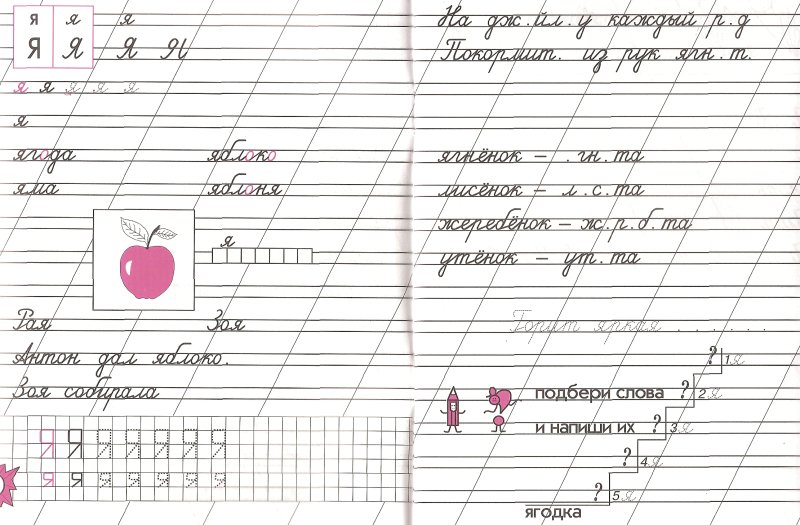 я я я
Я Я Я Я
я я я я я
я
ягода яблоко
яма яблоня
я
Рая Зоя
Антон дал яблоко.
Зоя собирала
Я Я Я Я Я Я Я
я я я я я я я
На дж.йл.у каждый р.д
Покормит. из рук ягн.т.
ягнёнок – .гн.та
лисёнок – л.с.та
жеребёнок – ж.р.б.та
утёнок – ут.та
Горит яркая . . . . . .
? 1я
подбери слова ? 2я
и напиши их ? 3я
? 4я
? 5я
ягодка